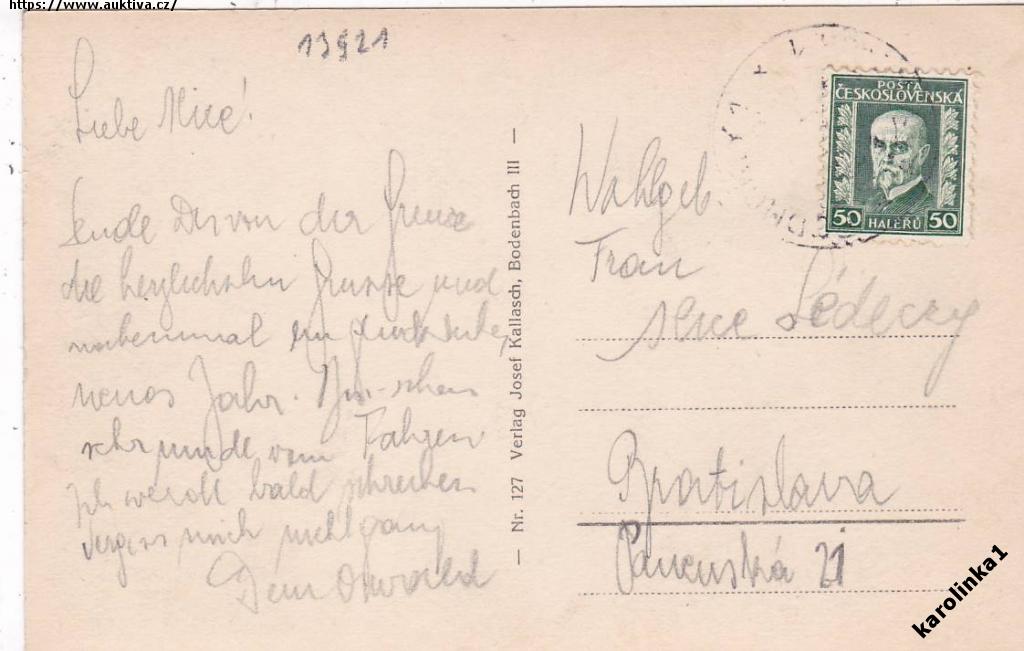 https://www.auktiva.cz/
13921
Liebe Mice!
Sende Dir von der Grenze
die herzlichsten Grüsse und
nocheinmal ein
neues Jahr. schon
sehr müde vom
Ich werde bald schreiben
vergiss mich nicht ganz
Dein Oswald
— Nr. 127 Verlag Josef Kallasch, Bodenbach III —
POŠTA
ČESKOSLOVENSKÁ
50 HALÉŘŮ 50
Wohlgeb.
Frau
Bratislava
Panenská 21
karolinka1